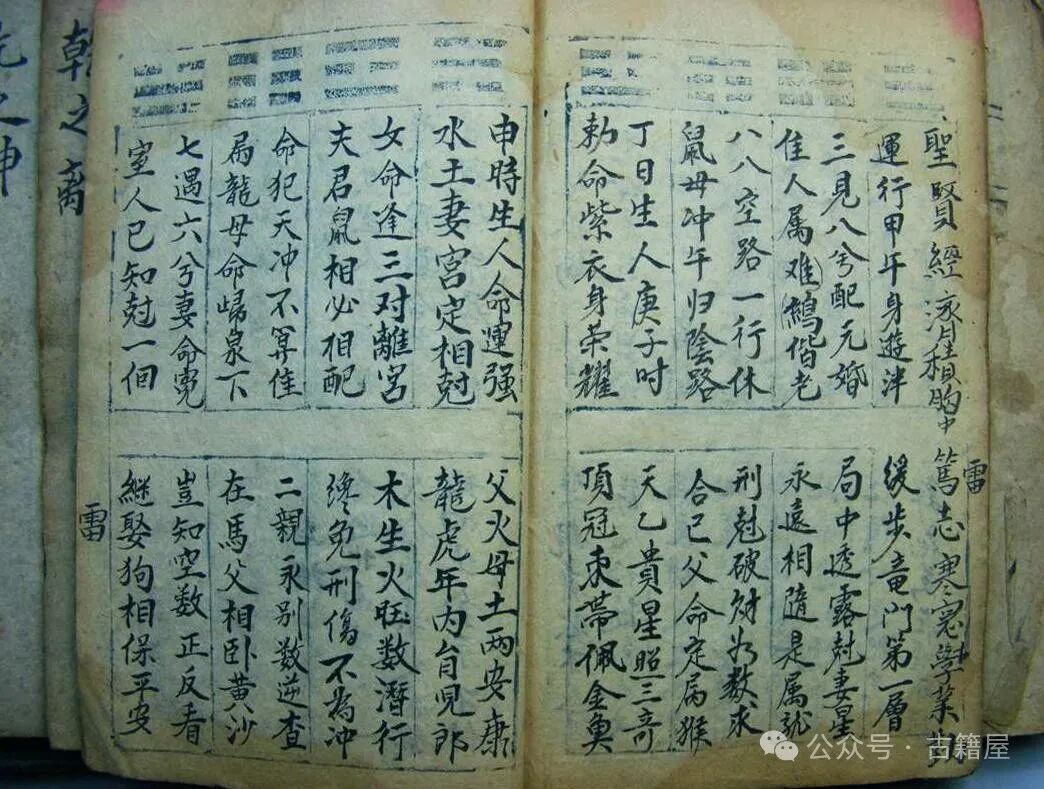 聖賢經濟積胸中
篤志寒窓學業
運行甲午身遊泮
緩步竜門第一層
三見八兮配元婚
局中透露尅妻星
佳人属难鷄偕老
永遠相隨是属
八八空路一行休
刑尅破財为数求
鼠母冲午归陰路
合巳父命定属猴
丁日生人庚子时
天乙貴星照三奇
勅命紫衣身荣耀
頂冠束帶佩金魚
雷
申時生人命運强
父火母土两安康
水土妻宮定相尅
龍虎年內育児郎
女命逢三对離宮
木生火旺数潛行
夫君鼠相必相配
纔免刑傷不為冲
命犯天冲不算佳
二親永别数逆查
属龍母命歸泉下
在馬父相卧黄沙
七遇六兮妻命
豈知空数正反看
室人已知尅一個
継娶狗相保平安
雷
乾之離
乾之坤
公众号·古籍屋